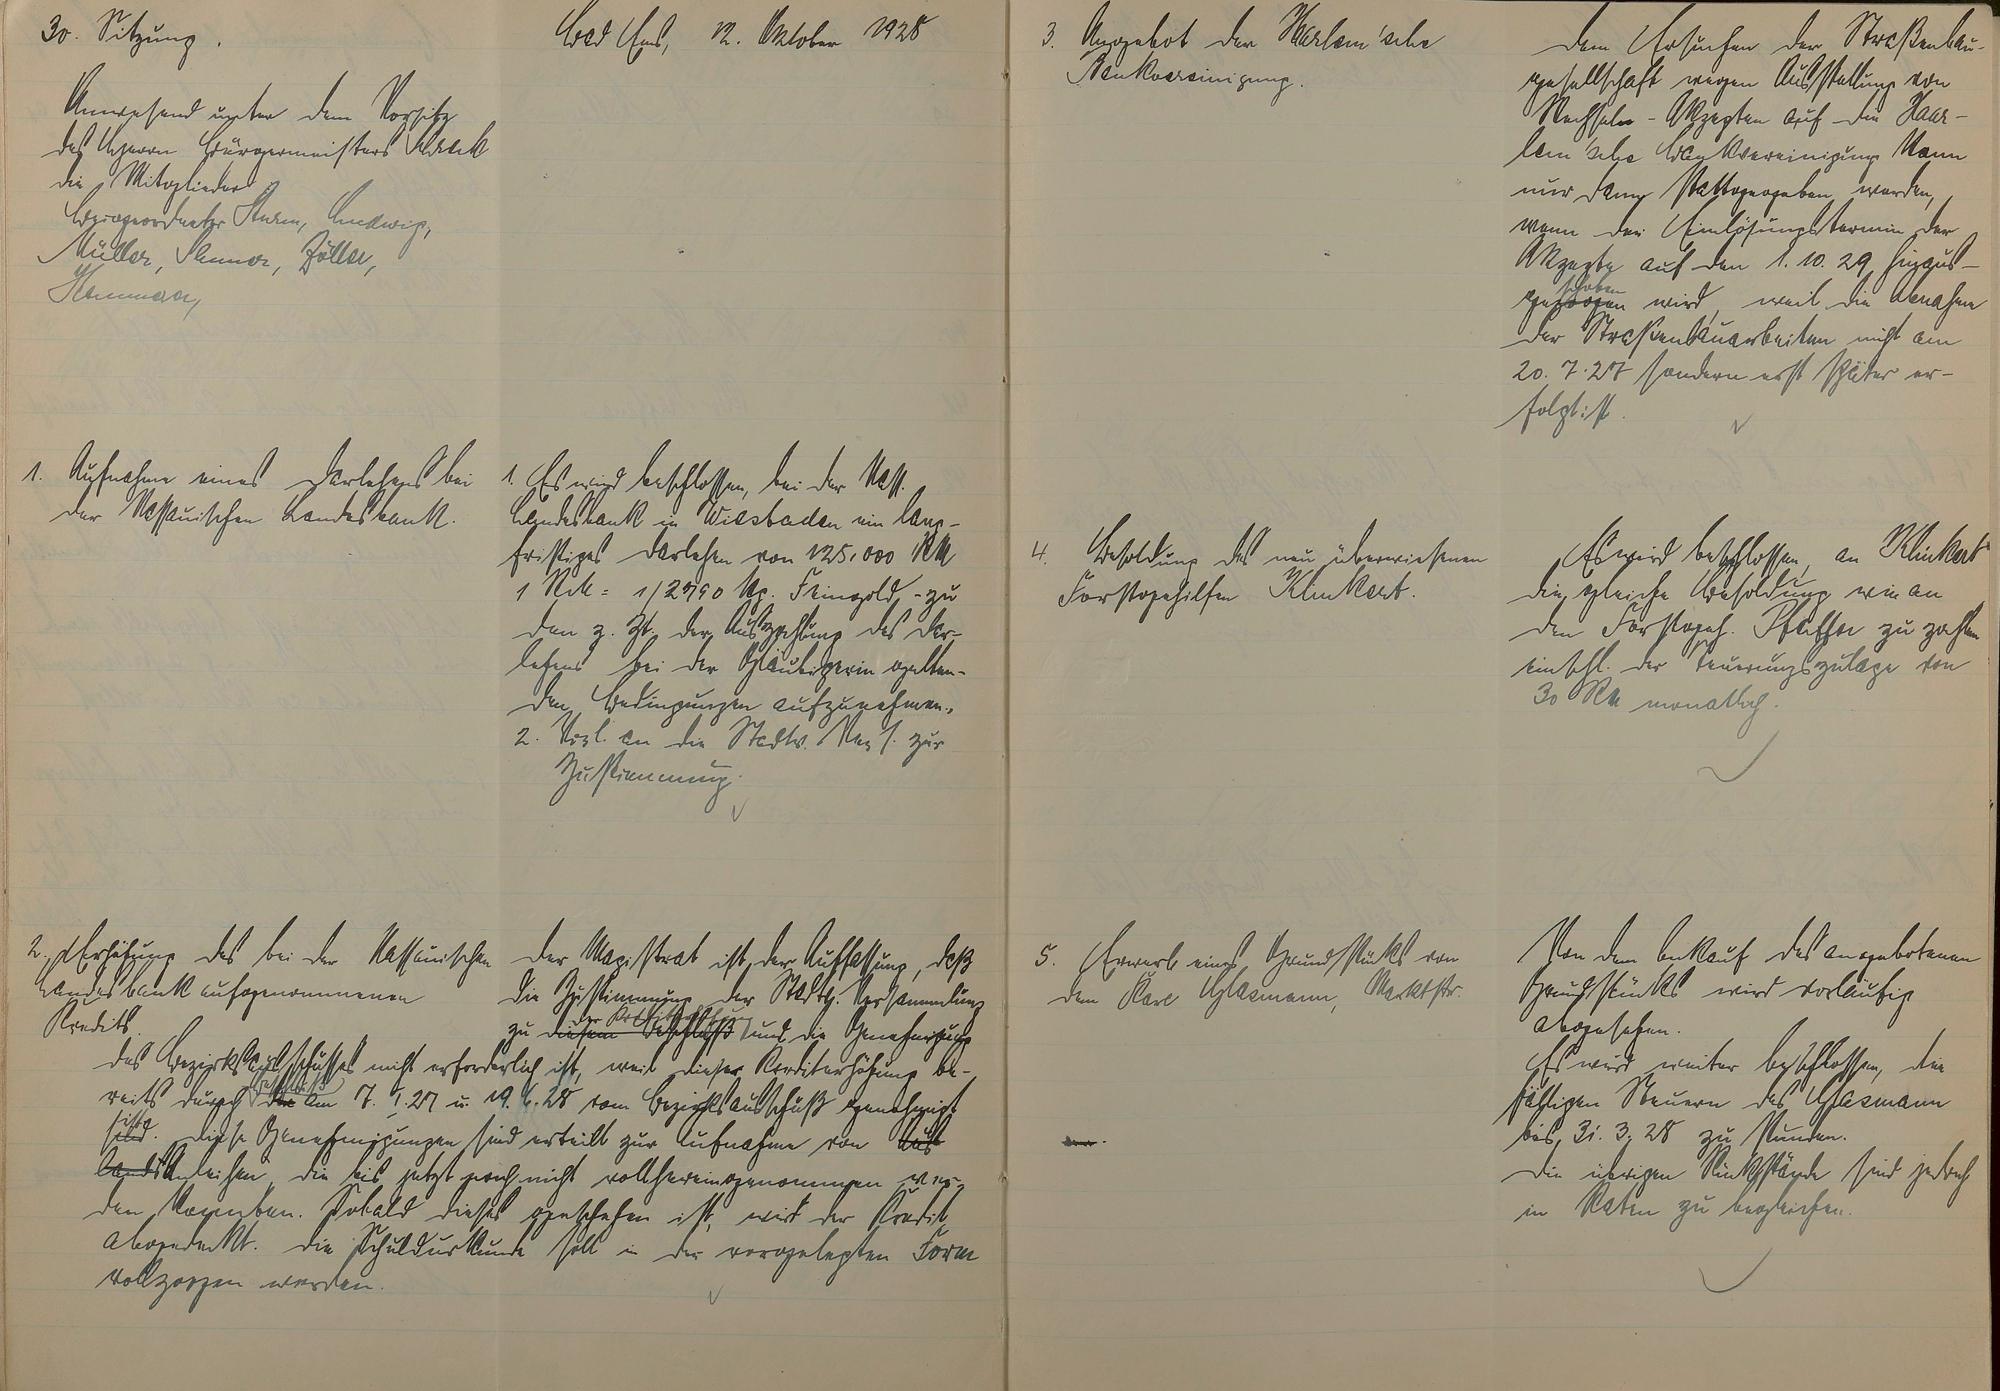 30. Sitzung.
Bad Ems, 12. Oktober 1928
Anwesend unter dem Vorsitz
des Herrn Bürgermeisters
die Mitglieder
Beigeordneter Sturm, Ludwig,
Müller, Zöller,
1. Aufnahme eines Darlehens bei
der Nassauischen Landesbank.
1. Es wird beschlossen, bei der Nass.
Landesbank in Wiesbaden ein lang-
fristiges Darlehen von 125.000 RM
1 RM = 1/2790 kg. Feingold - zu
den z. Zt. der Auszahlung des Dar-
lehens bei der Gläubigerin gelten-
den Bedingungen aufzunehmen.
2. Vorl. an die Stadtv. Vers. zur
Zustimmung.
2. Erhöhung des bei der Nassauischen
Landesbank aufgenommenen
Kredits.
Der Magistrat ist der Auffassung, daß
die Zustimmung der Stadtv. Versammlung
zu der Krediterhöhung
diesem Beschluß und die Genehmigung
des Bezirksausschusses nicht erforderlich ist, weil dieser Krediterhöhung be-
reits durch Beschluß am 7. 1. 27 u. 19. 6. 28 vom Bezirksausschuß genehmigt
ist. Diese Genehmigungen sind erteilt zur Aufnahme von Aus
landsAnleihen, die bis jetzt noch nicht voll hereingenommen wer-
den konnten. Sobald dieses geschehen ist, wird der Kredit
abgedeckt. Die Schuldurkunde soll in der vorgelegten Form
vollzogen werden.
3. Angebot der Harlem'sche
Bankvereinigung.
Dem Ersuchen der Straßenbau-
gesellschaft wegen Ausstellung von
Wechseln - Akzepten auf die Haar-
lem'sche Bankvereinigung kann
nur dann stattgegeben werden,
wenn der Einlösungstermin der
Akzepte auf den 1. 10. 29 hinaus-
schoben
gezogen wird, weil die Abnahme
der Straßenbauarbeiten nicht am
20. 7. 27 sondern erst später er-
folgt ist.
4. Besoldung des neu überwiesenen
Forstgehilfen Klinkert.
Es wird beschlossen, an Klinkert
die gleiche Besoldung wie an
den Forstgeh. Pfeiffer zu zahlen
einschl. der Teuerungszulage von
30 RM monatlich.
5. Erwerb eines Grundstücks von
dem Karl Glasmann, Marktstr.
Von dem Ankauf des angebotenen
Grundstücks wird vorläufig
abgesehen.
Es wird weiter beschlossen, die
fälligen Steuern des Glasmann
bis 31. 3. 28 zu stunden.
Die übrigen Rückstände sind jedoch
in Raten zu begleichen.